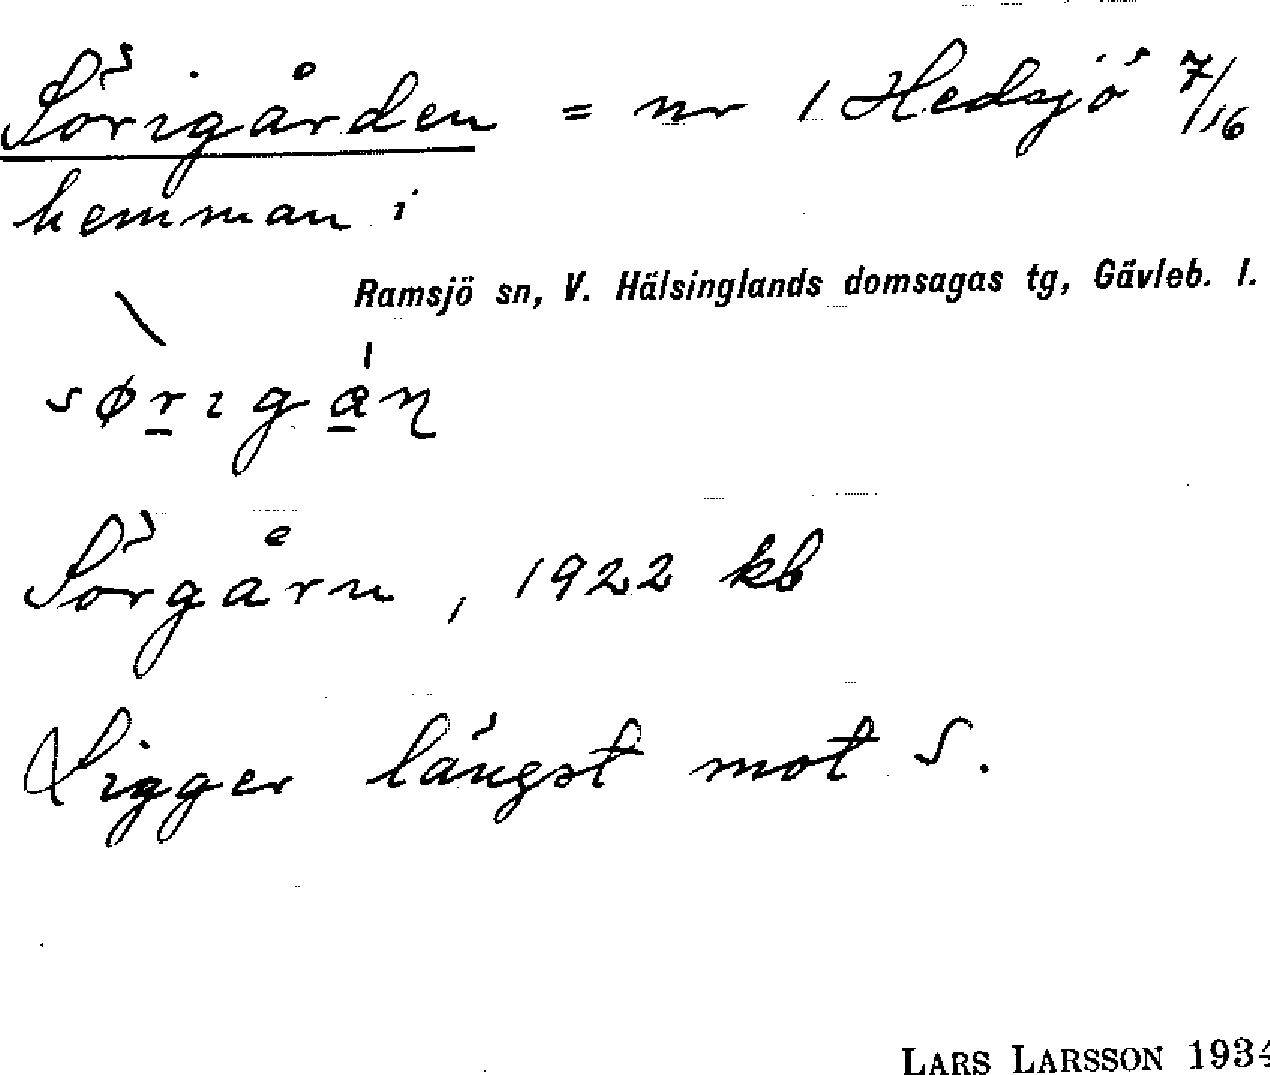 Sörigården = nr 1 Hedsjö 7/16
hemman i
Ramsjö sn, V. Hälsinglands domsagas tg, Gävleb. l.
sørıgán
Sörgårn, 1922 kb
Ligger längst mot S.
LARS LARSSON 1934